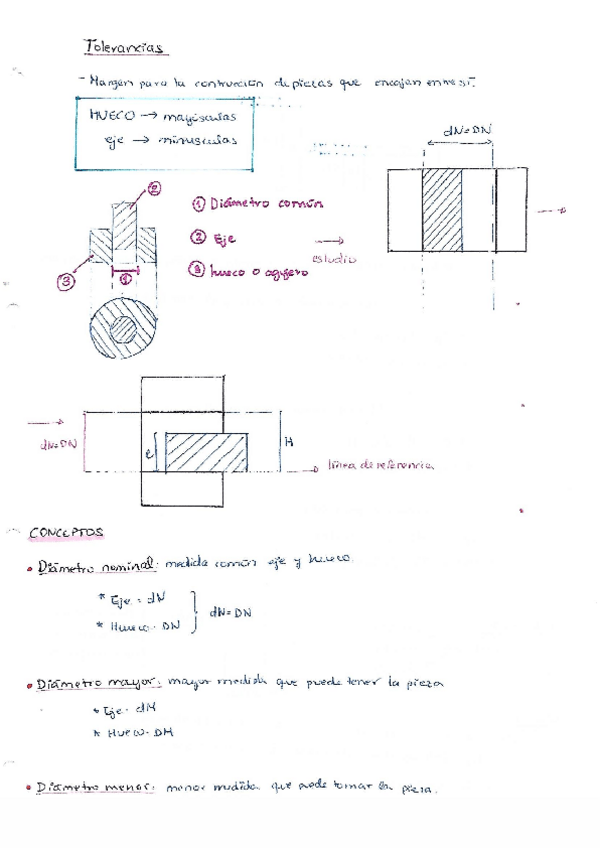 Tolerancias
- Margen para la contrucción de piezas que encajan entre sí.
HUECO → mayúsculas
eje → minúsculas
dN=DN
②
① Diámetro común
② Eje
estudio
③ hueco o agujero
③
①
dN=DN
e
H
línea de referencia
CONCEPTOS
• Diámetro nominal: medida común eje y hueco.
* Eje = dN
* Hueco = DN
dN=DN
• Diámetro mayor: mayor medida que puede tener la pieza
* Eje = dM
* Hueco = DM
• Diámetro menor: menor medida que puede tomar la pieza.